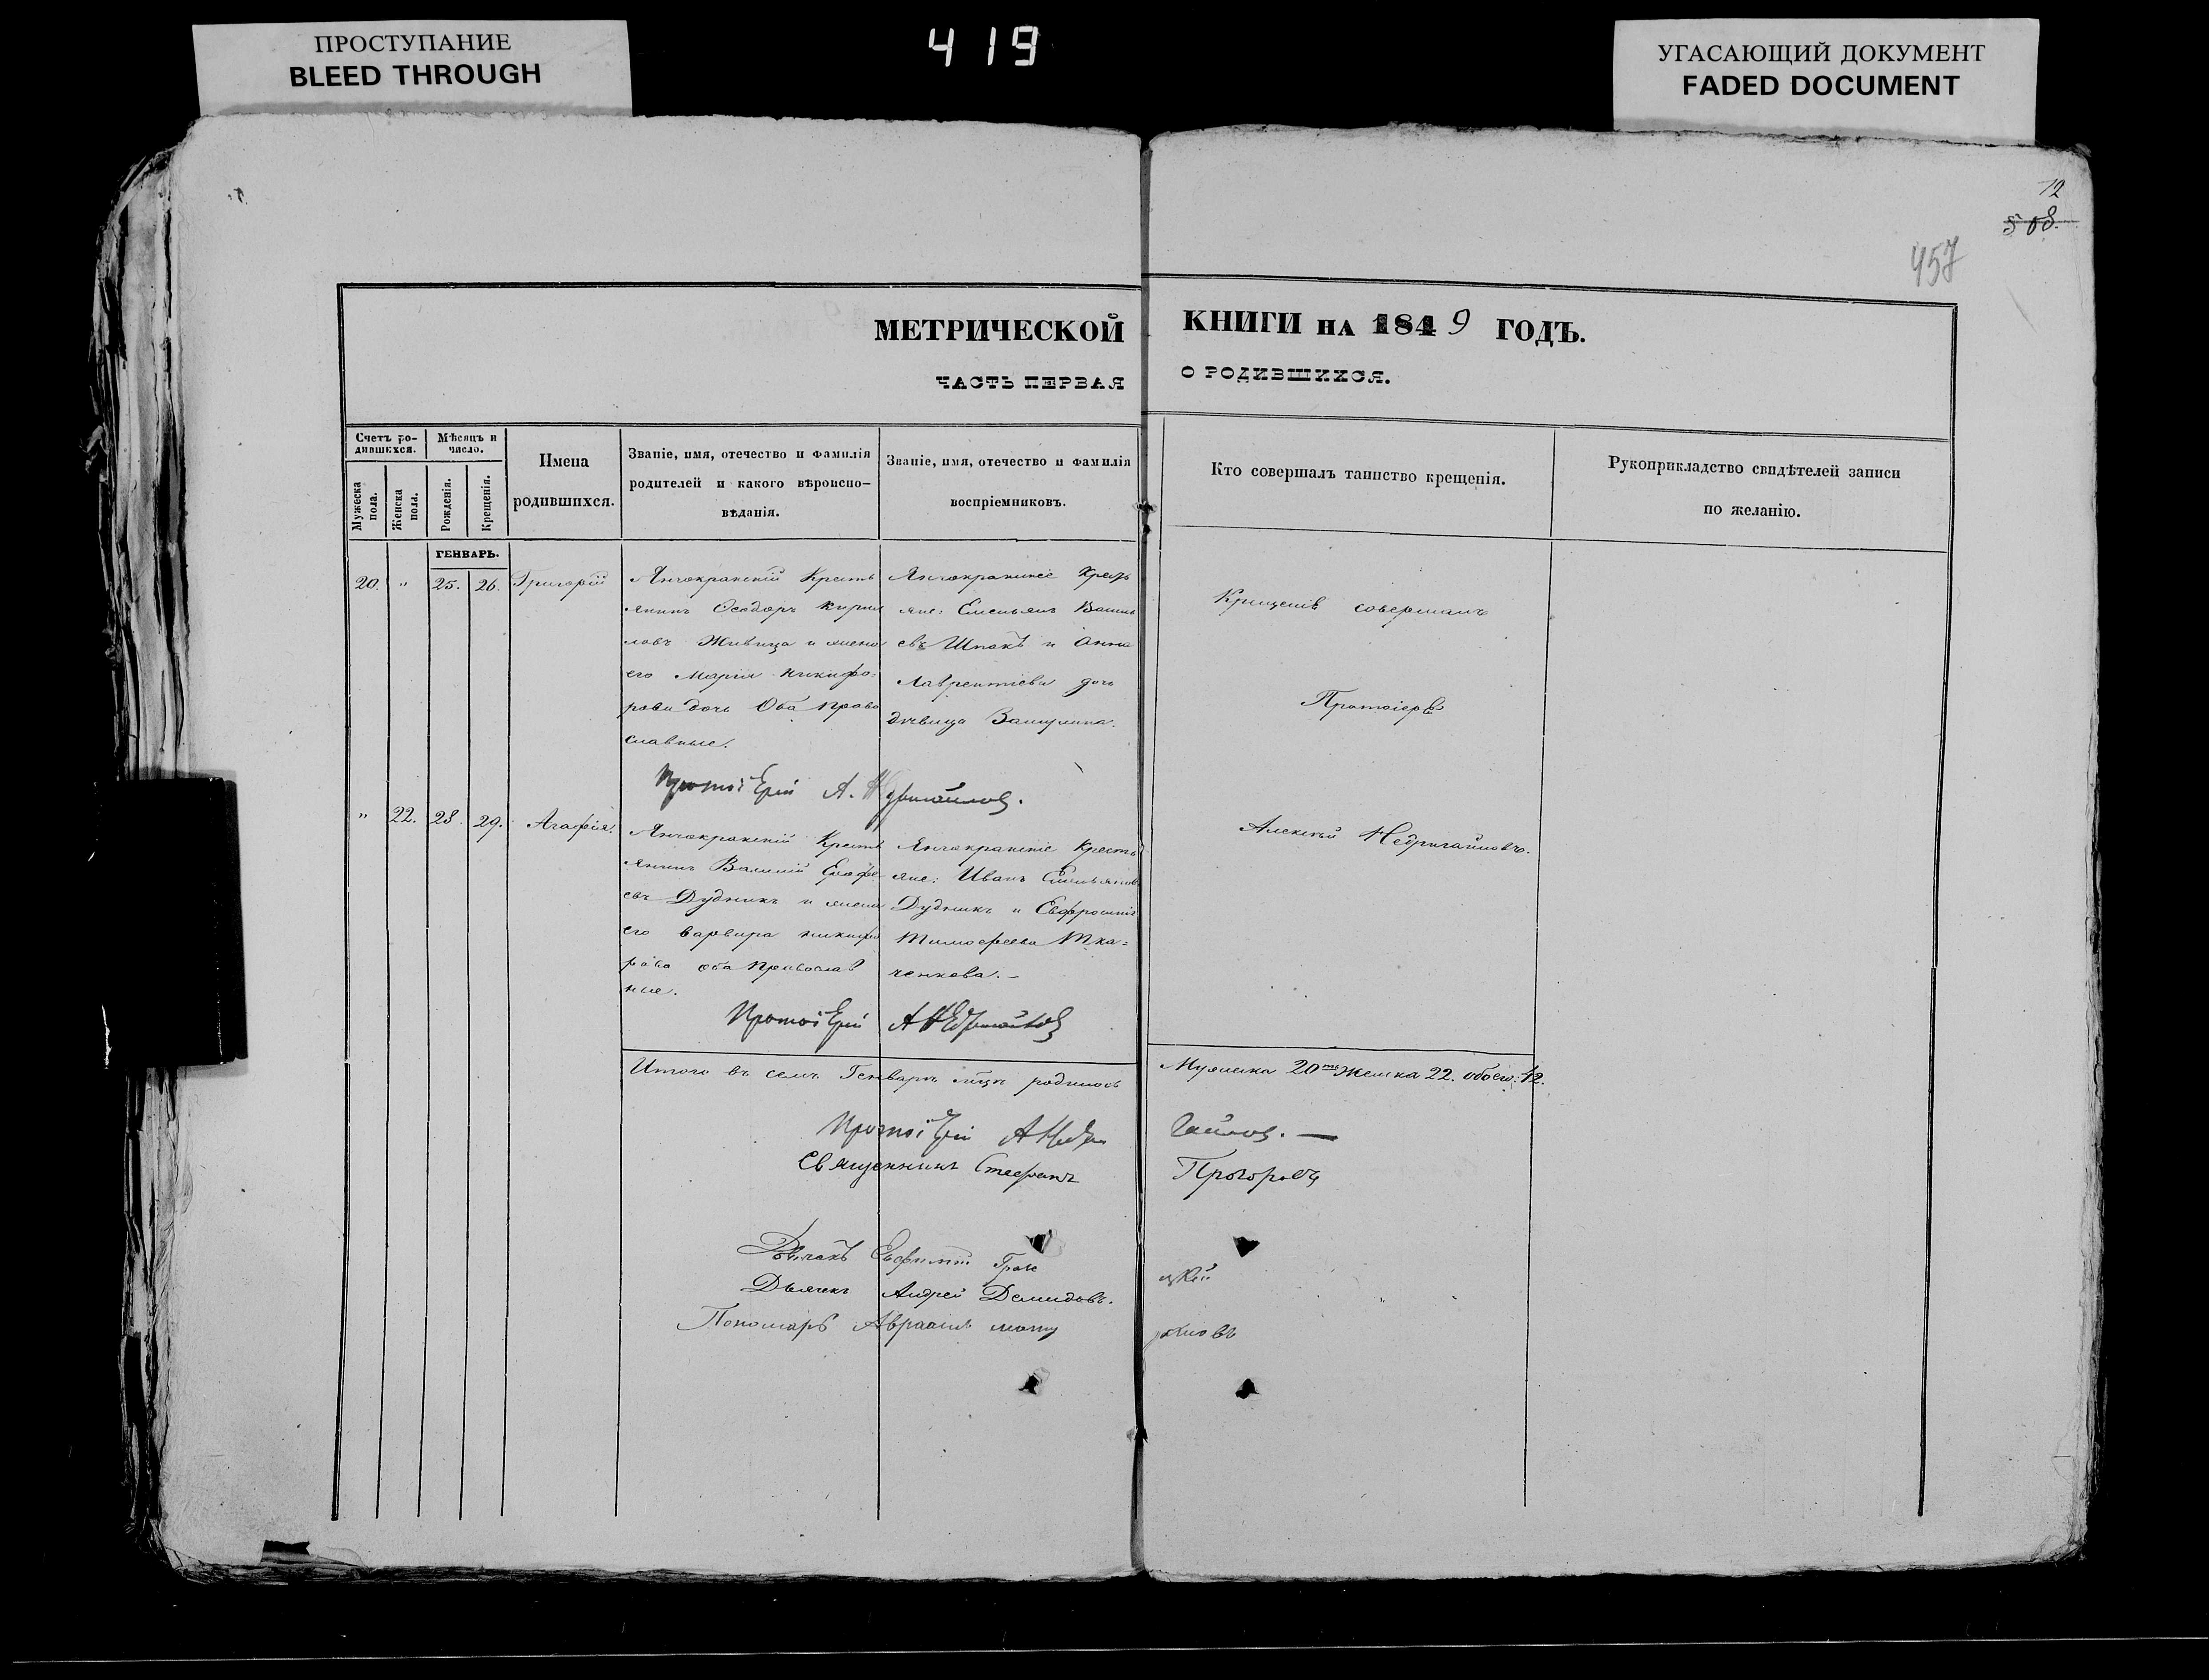 ПРОСТУПАНИЕ
BLEED THROUGH
419
УГАСАЮЩИЙ ДОКУМЕНТ
FADED DOCUMENT
12
508.
457
МЕТРИЧЕСКОЙ КНИГИ НА 1849 ГОДЪ.
ЧАСТЬ ПЕРВАЯ О РОДИВШИХСЯ.
Счетъ ро-
дившихся.
Мужеска пола.
Женска пола.
Мѣсяцъ и
число.
Рожденія.
Крещенія.
Имена
родившихся.
Званіе, имя, отечество и фамилія
родителей и какого вѣроиспо-
вѣданія.
Званіе, имя, отечество и фамилія
воспріемниковъ.
Кто совершалъ таинство крещенія.
Рукоприкладство свидѣтелей записи
по желанію.
ГЕНВАРЬ.
20. " 25. 26. Григорій
Янчокракскій Кресть
янинъ Ѳеодоръ Кирил
ловъ Живица и жена
его Марія Никифо=
рова дочь Оба право
славные.
Янчокракскіе Кресть
яне: Емельянъ Васил
евъ Шпакъ и Анна
Лаврентіева дочь
дѣвица
Крещеніе совершалъ
Протоіерей
Алексѣй Недригайловъ.
ПротоіЕрей А. Недригайловъ.
" 22. 28. 29. Агафія.
Янчокракскій Кресть
янинъ Василій Ерофе
евъ Дудникъ и жена
его Варвара Никифо
рова оба Православ
ные.
Янчокракскіе Кресть
яне: Иванъ Емельянов
Дудникъ и Евфросинія
Тимофеева Тка=
ченкова.-
ПротоіЕрей А Недригайловъ
Итого въ семъ Генваръ мѣцъ родилось Мужеска 20ть Женска 22. обоего: 42.
ПротоіЕрей А Недри гайловъ. —
Священникъ Стефанъ Прогоровъ
Евфимій Трои цкій
Дьячекъ Андрей Демидовъ.
Пономарь Авраамъ